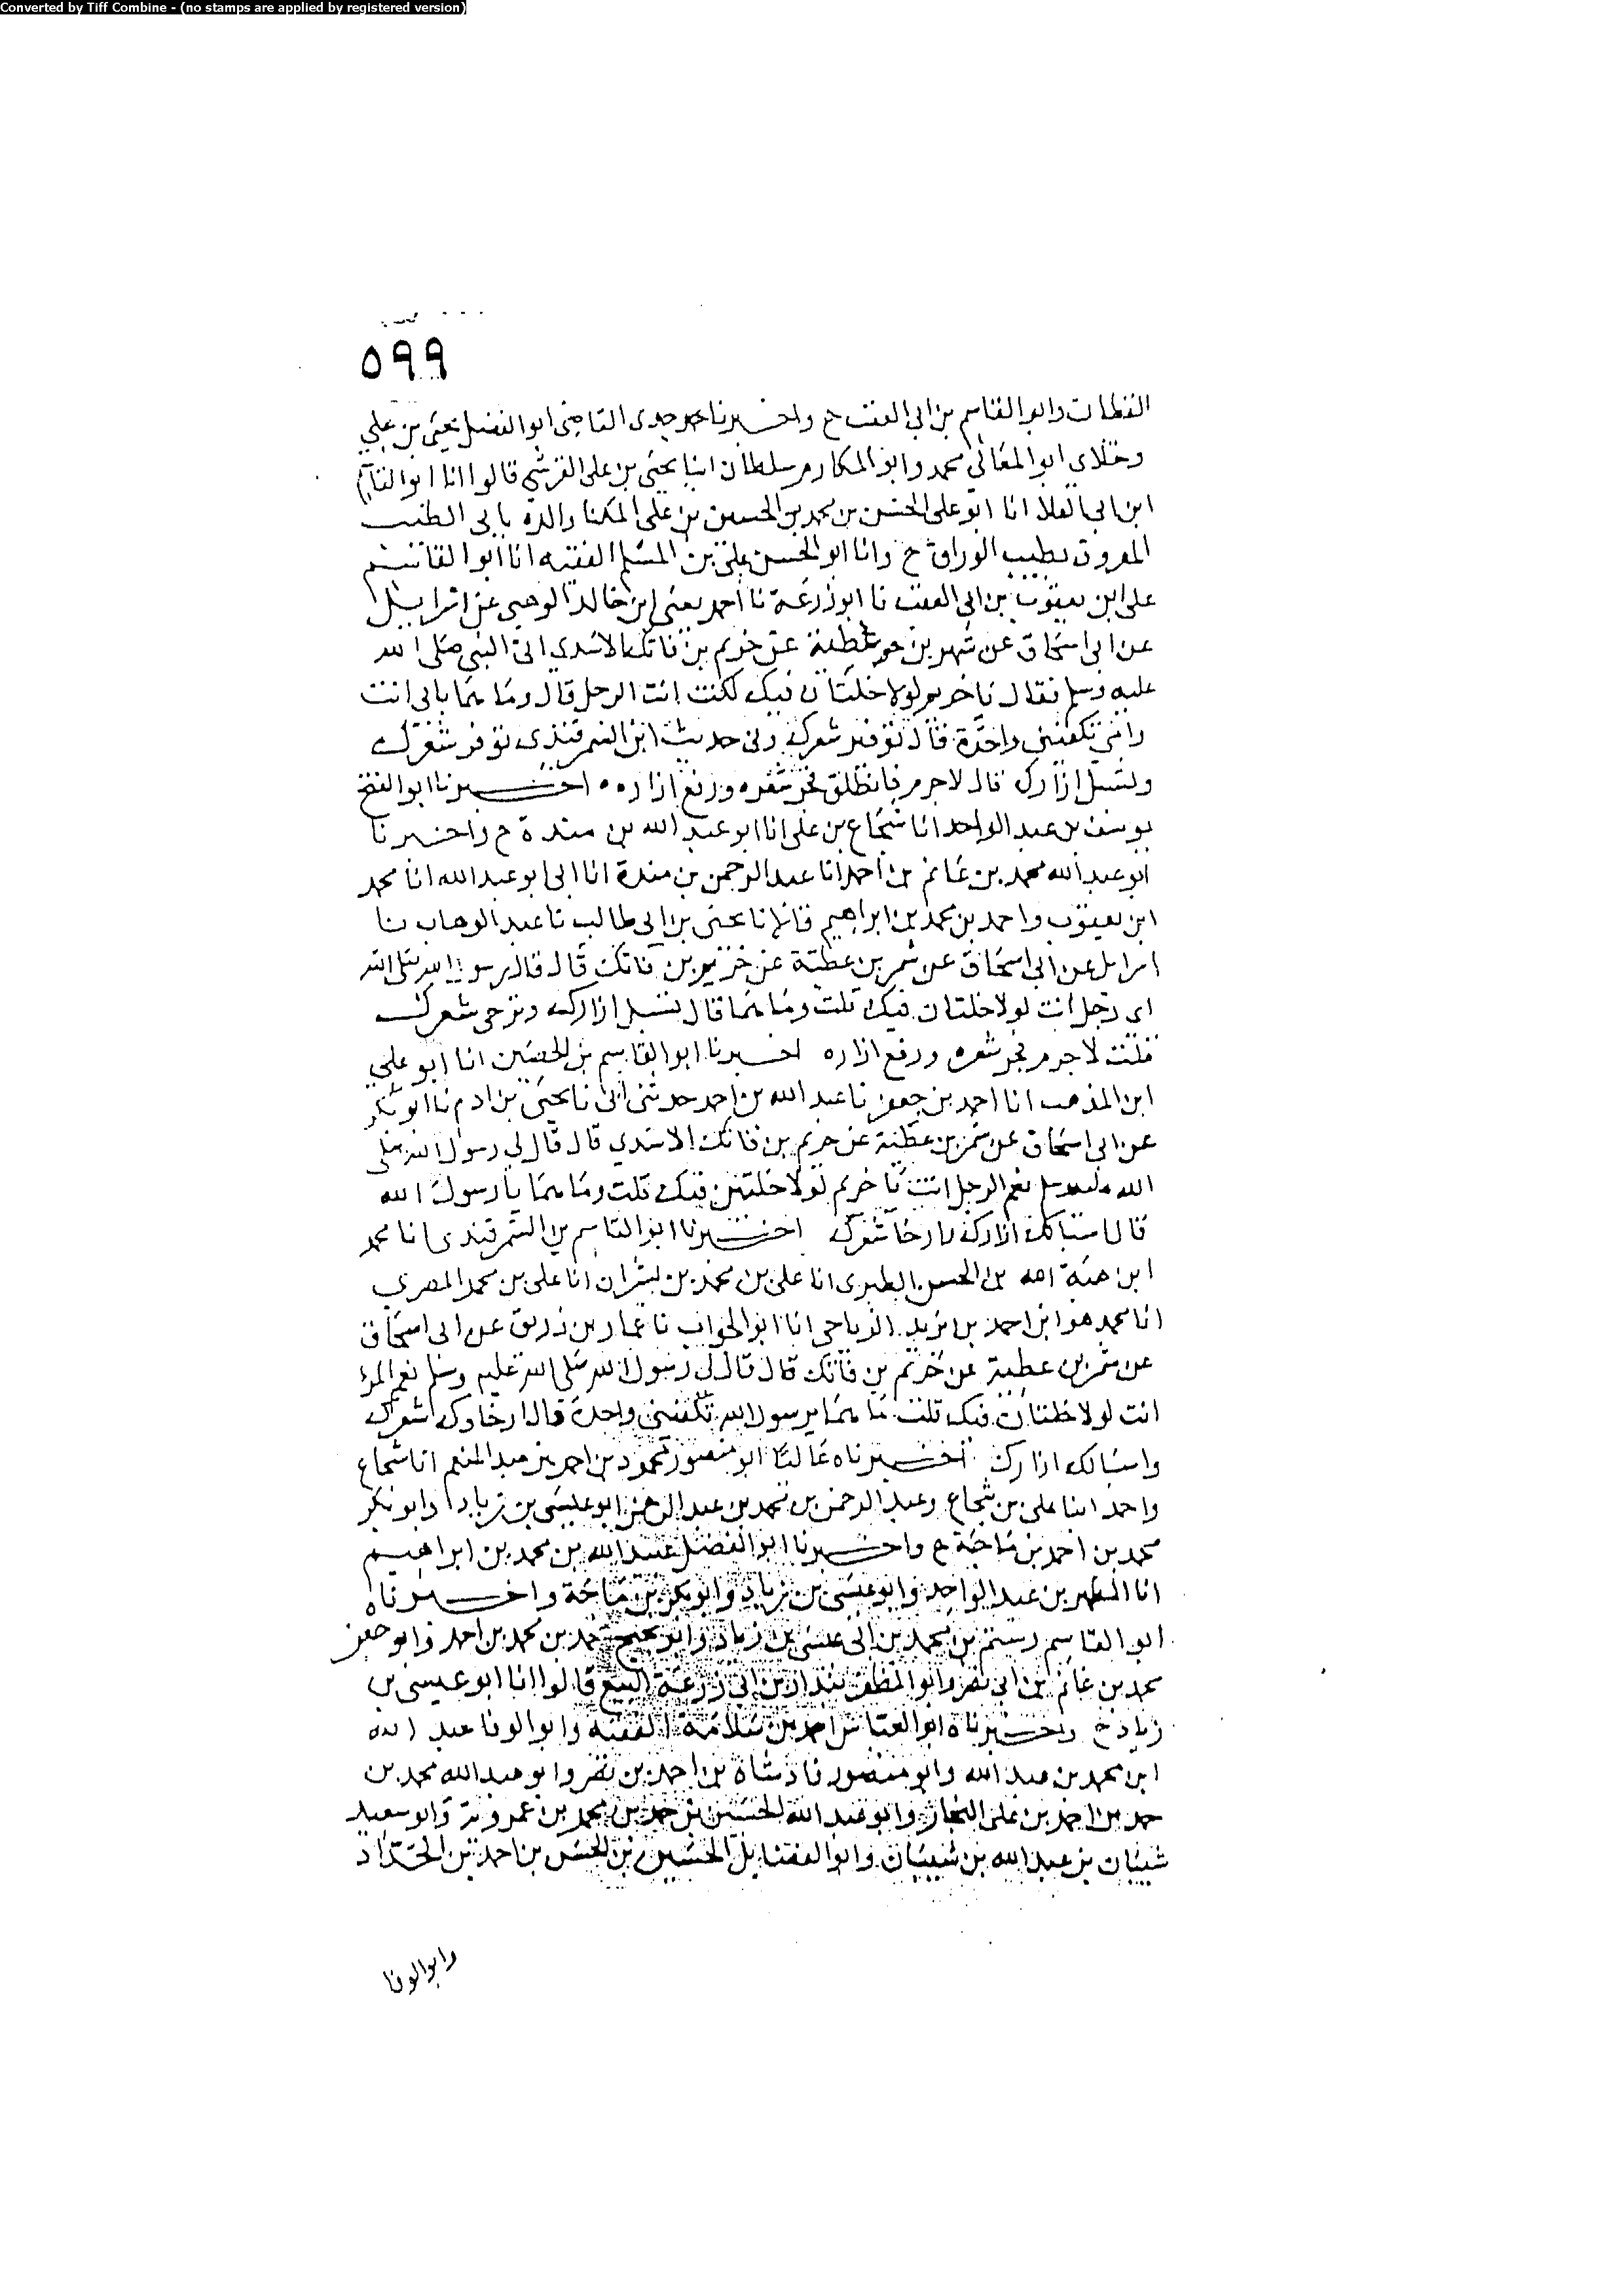 Converted by Tiff Combine - (no stamps are applied by registered version)
٥٩٩
القطان وابو القاسم بن ابي العقب ح واخبرنا جدي القاضي ابو الفضل يحيى بن علي
وخالاي ابو المعالي محمد وابو المكارم سلطان ابنا يحيى بن علي القرشي قالوا انا ابو القاسم
ابن ابي العلا انا ابو علي الحسن بن محمد بن الحسين بن علي المكنا والده بابي الطيب
المعروف بطيب الوراق ح وانا ابو الحسن علي بن المسلم الفقيه انا ابو القاسم
علي ابن يعقوب بن ابي العقب نا ابو زرعة نا احمد يعني ابن خالد الوهبي عن اسرائيل
عن ابي اسحاق عن شهر بن عطية عن خريم بن فاتك الاسدي اتى النبي صلى الله
عليه وسلم فقال يا خريم لولا خلتان فيك لكنت انت الرجل قال وما هما بابي انت
وامي تكفيني واحدة قال توفير شعرك وفي حديث ابن السمرقندي توفر شعرك
وتسبل ازارك قال لا جرم فانطلق فجز شعره ورفع ازاره اخبرنا ابو الفتح
يوسف بن عبد الواحد انا شجاع بن علي انا ابو عبد الله بن مندة ح واخبرنا
ابو عبد الله محمد بن غانم بن احمد انا عبد الرحمن بن مندة انا ابي ابو عبد الله انا محمد
ابن يعقوب واحمد بن محمد بن ابراهيم قالا نا يحيى بن ابي طالب نا عبد الوهاب نا
اسرايل عن ابي اسحاق عن شمر بن عطية عن خريم بن فاتك قال قال رسول الله صلى الله
اي رجل انت لولا خلتان فيك قلت وما هما قال تسبل ازارك وترخي شعرك
قلت لا جرم فجز شعره ورفع ازاره اخبرنا ابو القاسم بن الحصين انا ابو علي
ابن المذهب انا احمد بن جعفر نا عبد الله بن احمد حدثني ابي نا يحيى بن ادم نا ابو بكر
عن ابي اسحاق عن شمر بن عطية عن خريم بن فاتك الاسدي قال قال لي رسول الله صلى
الله عليه وسلم نعم الرجل انت يا خريم لولا خلتين فيك قلت وما هما يا رسول الله
قال اسبالك ازارك وارخا شعرك اخبرنا ابو القاسم بن السمرقندي انا محمد
ابن هبة الله بن الحسن الطبري انا علي بن محمد بن بشران انا علي بن محمد المصري
انا محمد هو ابن احمد بن يزيد الرياحي انا ابو الجواب نا عمار بن زريق عن ابي اسحاق
عن شمر بن عطية عن خريم بن فاتك قال قال لي رسول الله صلى الله عليه وسلم نعم المرؤ
انت لولا خلتان فيك قلت ما هما يرسول الله تكفيني واحدة قال ارخاوك شعرك
واسبالك ازارك اخبرناه عاليا ابو منصور محمود بن احمد بن عبد المنعم انا شجاع
واحمد ابنا علي بن شجاع وعبد الرحمن بن محمد بن عبد الرحمن ابو عيسى بن زياد وابو بكر
محمد بن احمد بن ماجة ح واخبرنا ابو الفضل عبد الله بن محمد بن ابراهيم
انا المطهر بن عبد الواحد وابو عيسى بن زياد وابو بكر بن ماجة واخبرناه
ابو القاسم رستم بن محمد بن ابي عيسى بن زياد وابو نجيح محمد بن محمد بن احمد وابو جعفر
محمد بن غانم بن ابي نصر وابو المظفر بندار بن ابي زرعة البيع قالوا انا ابو عيسى بن
زياد ح واخبرناه ابو العباس احمد بن سلامة الفقيه وابو الوفا عبد الله
ابن محمد بن عبد الله وابو منصور فاذشاه بن احمد بن نصر وابو عبد الله محمد بن
حمد بن احمد بن علي النجار وابو عبد الله الحسين بن حمد بن محمد بن عمرويه وابو سعيد
شيبان بن عبد الله بن شيبان وابو الفضايل الحسين بن الحسن بن احمد بن الحداد
وابو الوفا